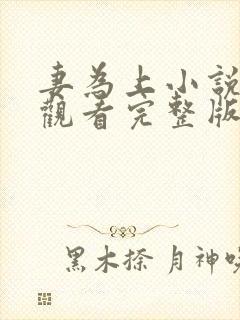 妻為上小說
觀看完整版
黑木捺 月神